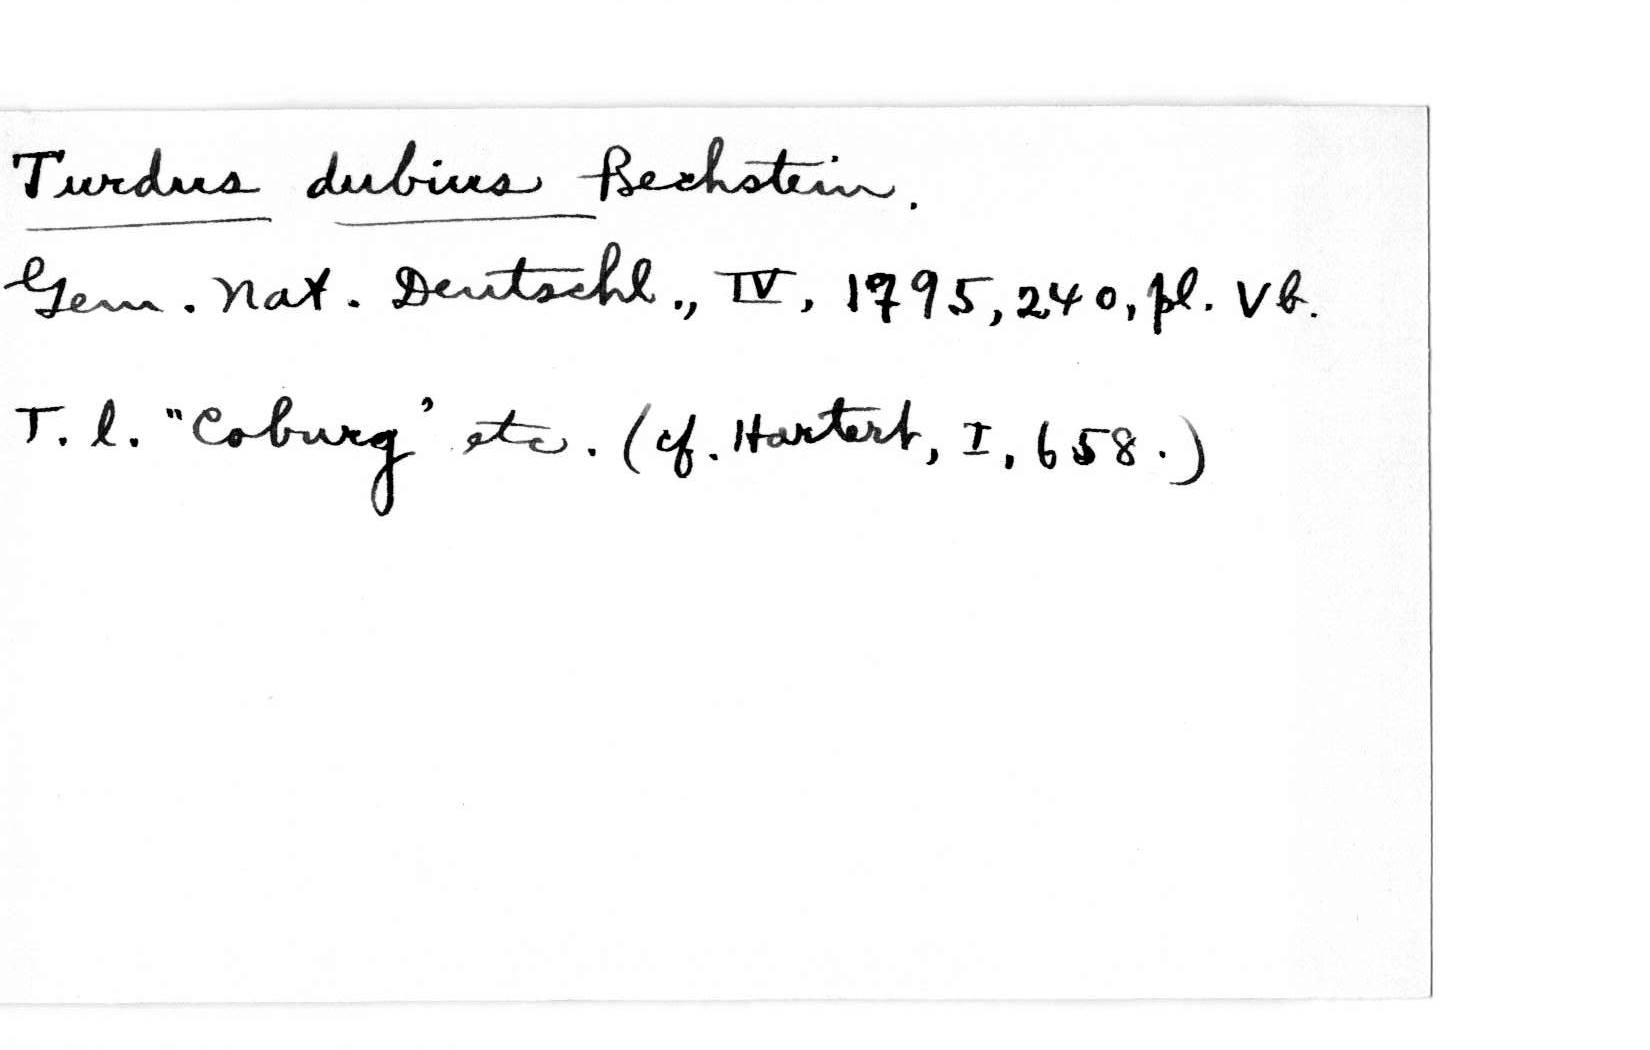 Turdus dubius Bechstein.
Gem. Nat. Deutschl., IV, 1795, 240, pl. Vb.
T. l. "Coburg" etc. (cf. Hartert, I, 658.)